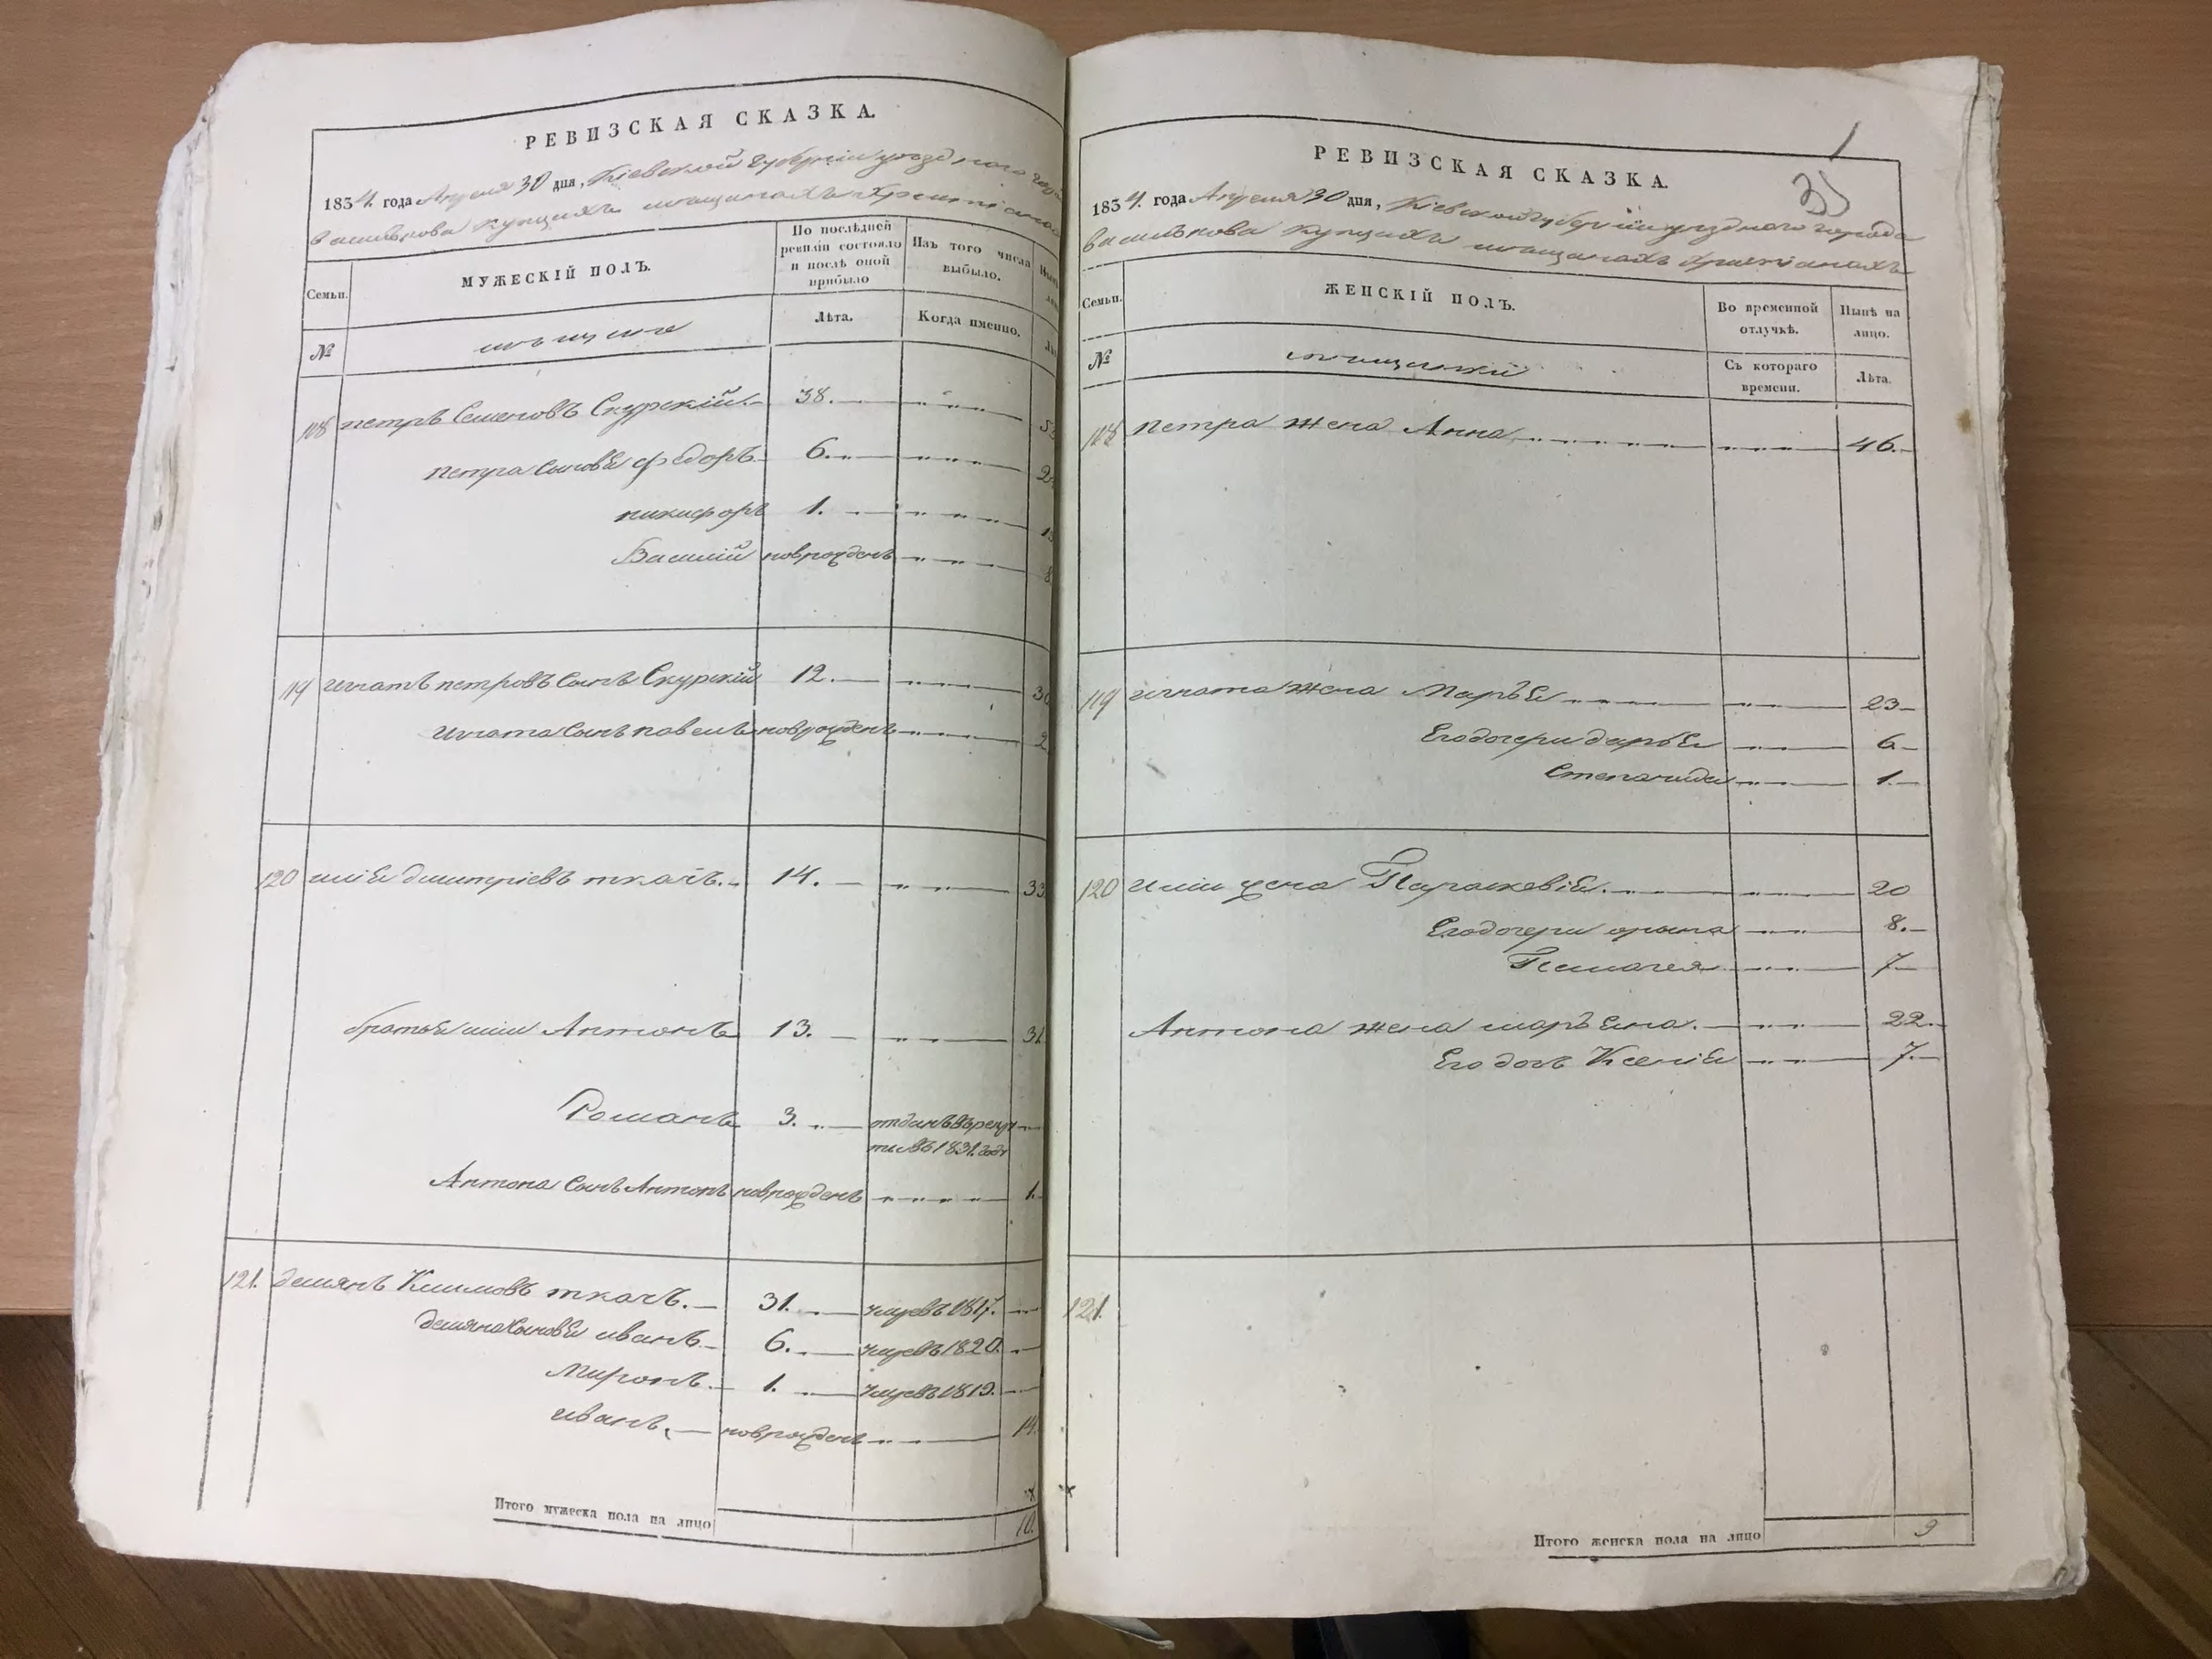 РЕВИЗСКАЯ СКАЗКА.
1834. года Апреля 30 дня, Кіевской губерніи уезднаго
Василькова купцахъ мещанахъ
Семьи.
МУЖЕСКІЙ ПОЛЪ.
По послѣдней ревизіи состояло и послѣ оной прибыло
Изъ того числа выбыло.
№
мещане
Лѣта.
Когда именно.
118 петръ Семеновъ Скурскій. 38.
петра сыновья федоръ 6.
никифоръ 1.
Василій новрожденъ
119 игнатъ петровъ сынъ Скурскій 12.
игната сынъ павелъ новрожденъ 2
120 илія дмитріевъ ткачъ. 14. 33
братья иліи Антонъ 13. 31
Романъ 3. отданъ въ рекру
ты въ 1831. году
Антона сынъ Антонъ новрожденъ 1.
121. демянъ Климовъ ткачъ. 31. умре въ 1817.
демяна сыновья иванъ 6. умре въ 1820.
Миронъ 1. умре въ 1819.
иванъ новрожденъ 14.
Итого мужеска пола на лицо 10.
РЕВИЗСКАЯ СКАЗКА.
35
1834. года Апреля 30 дня, Кіевской губерніи уезднаго города
Василькова купцахъ мещанахъ христіанахъ
Семьи.
ЖЕНСКІЙ ПОЛЪ.
Во временной отлучкѣ.
Нынѣ на лицо.
№
мещанки
Съ котораго времени.
Лѣта.
118 петра жена Анна 46.
119 игната жена Марья 23
Его дочери дарья 6
Степанида 1.
120 иліи жена Параскевія 20
Его дочери орына 8.
Пелагея 7
Антона жена марьяна. 22.
Его дочь Ксенія 7.
121.
Итого женска пола на лицо 9